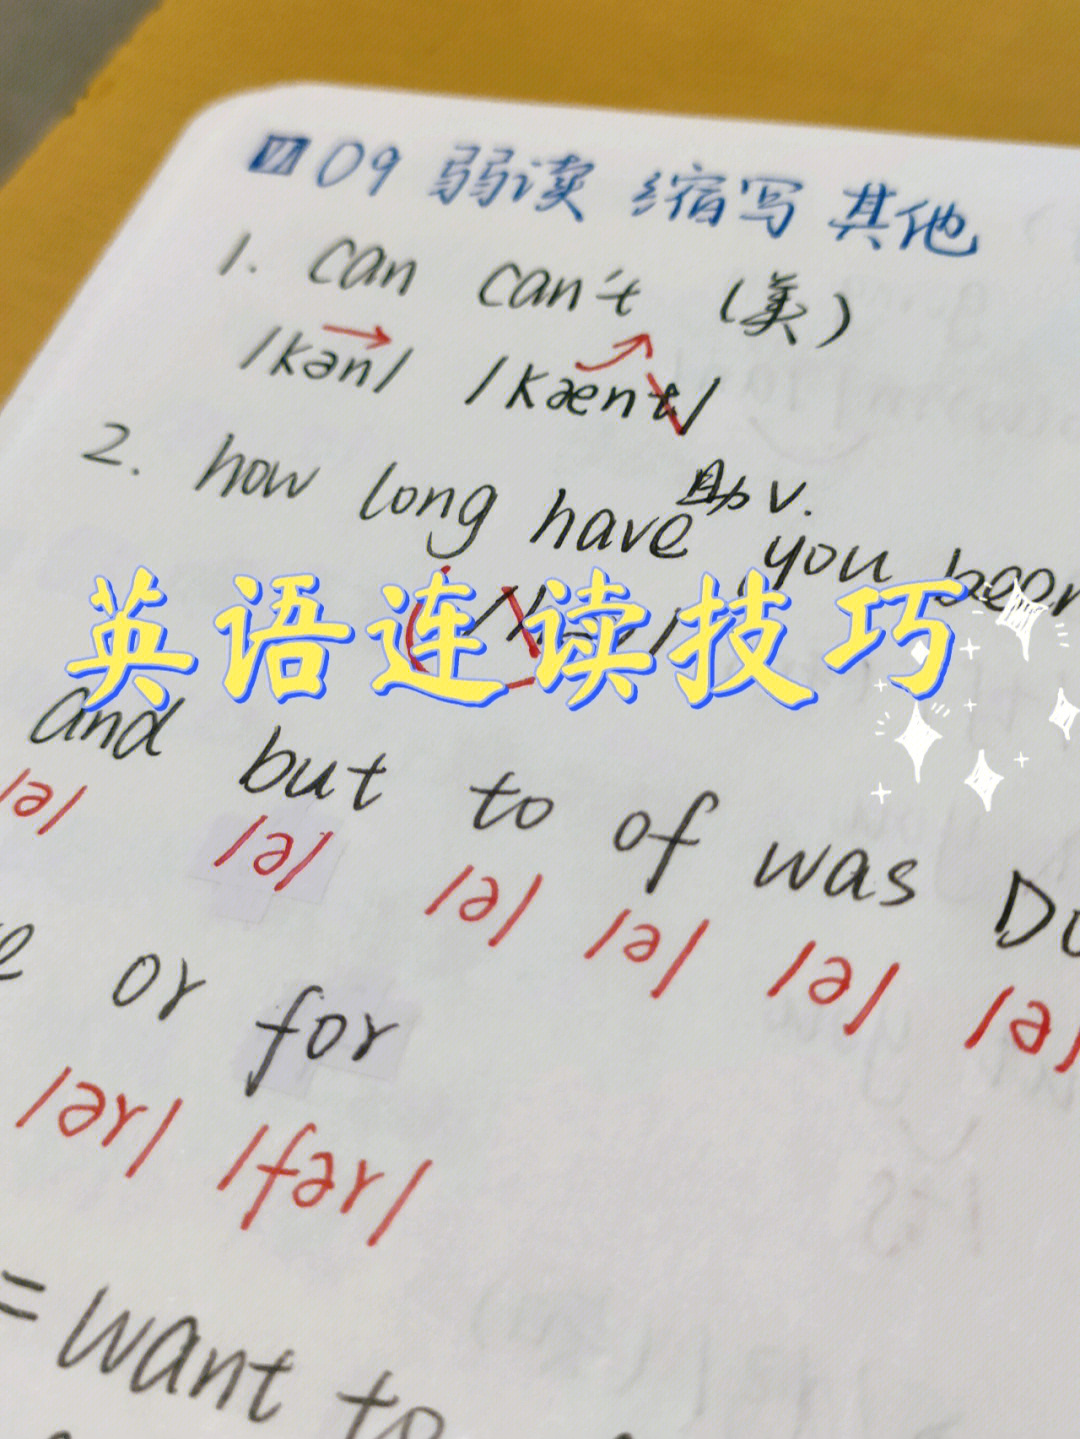 09 弱读 缩写 其他
1. can can't (美)
/kən/ /kænt/
助 v.
2. how long have you been
英语连读技巧
and but to of was
/ə/ /ə/ /ə/ /ə/ /ə/ /ə/
or for
/ər/ /fər/
= want to